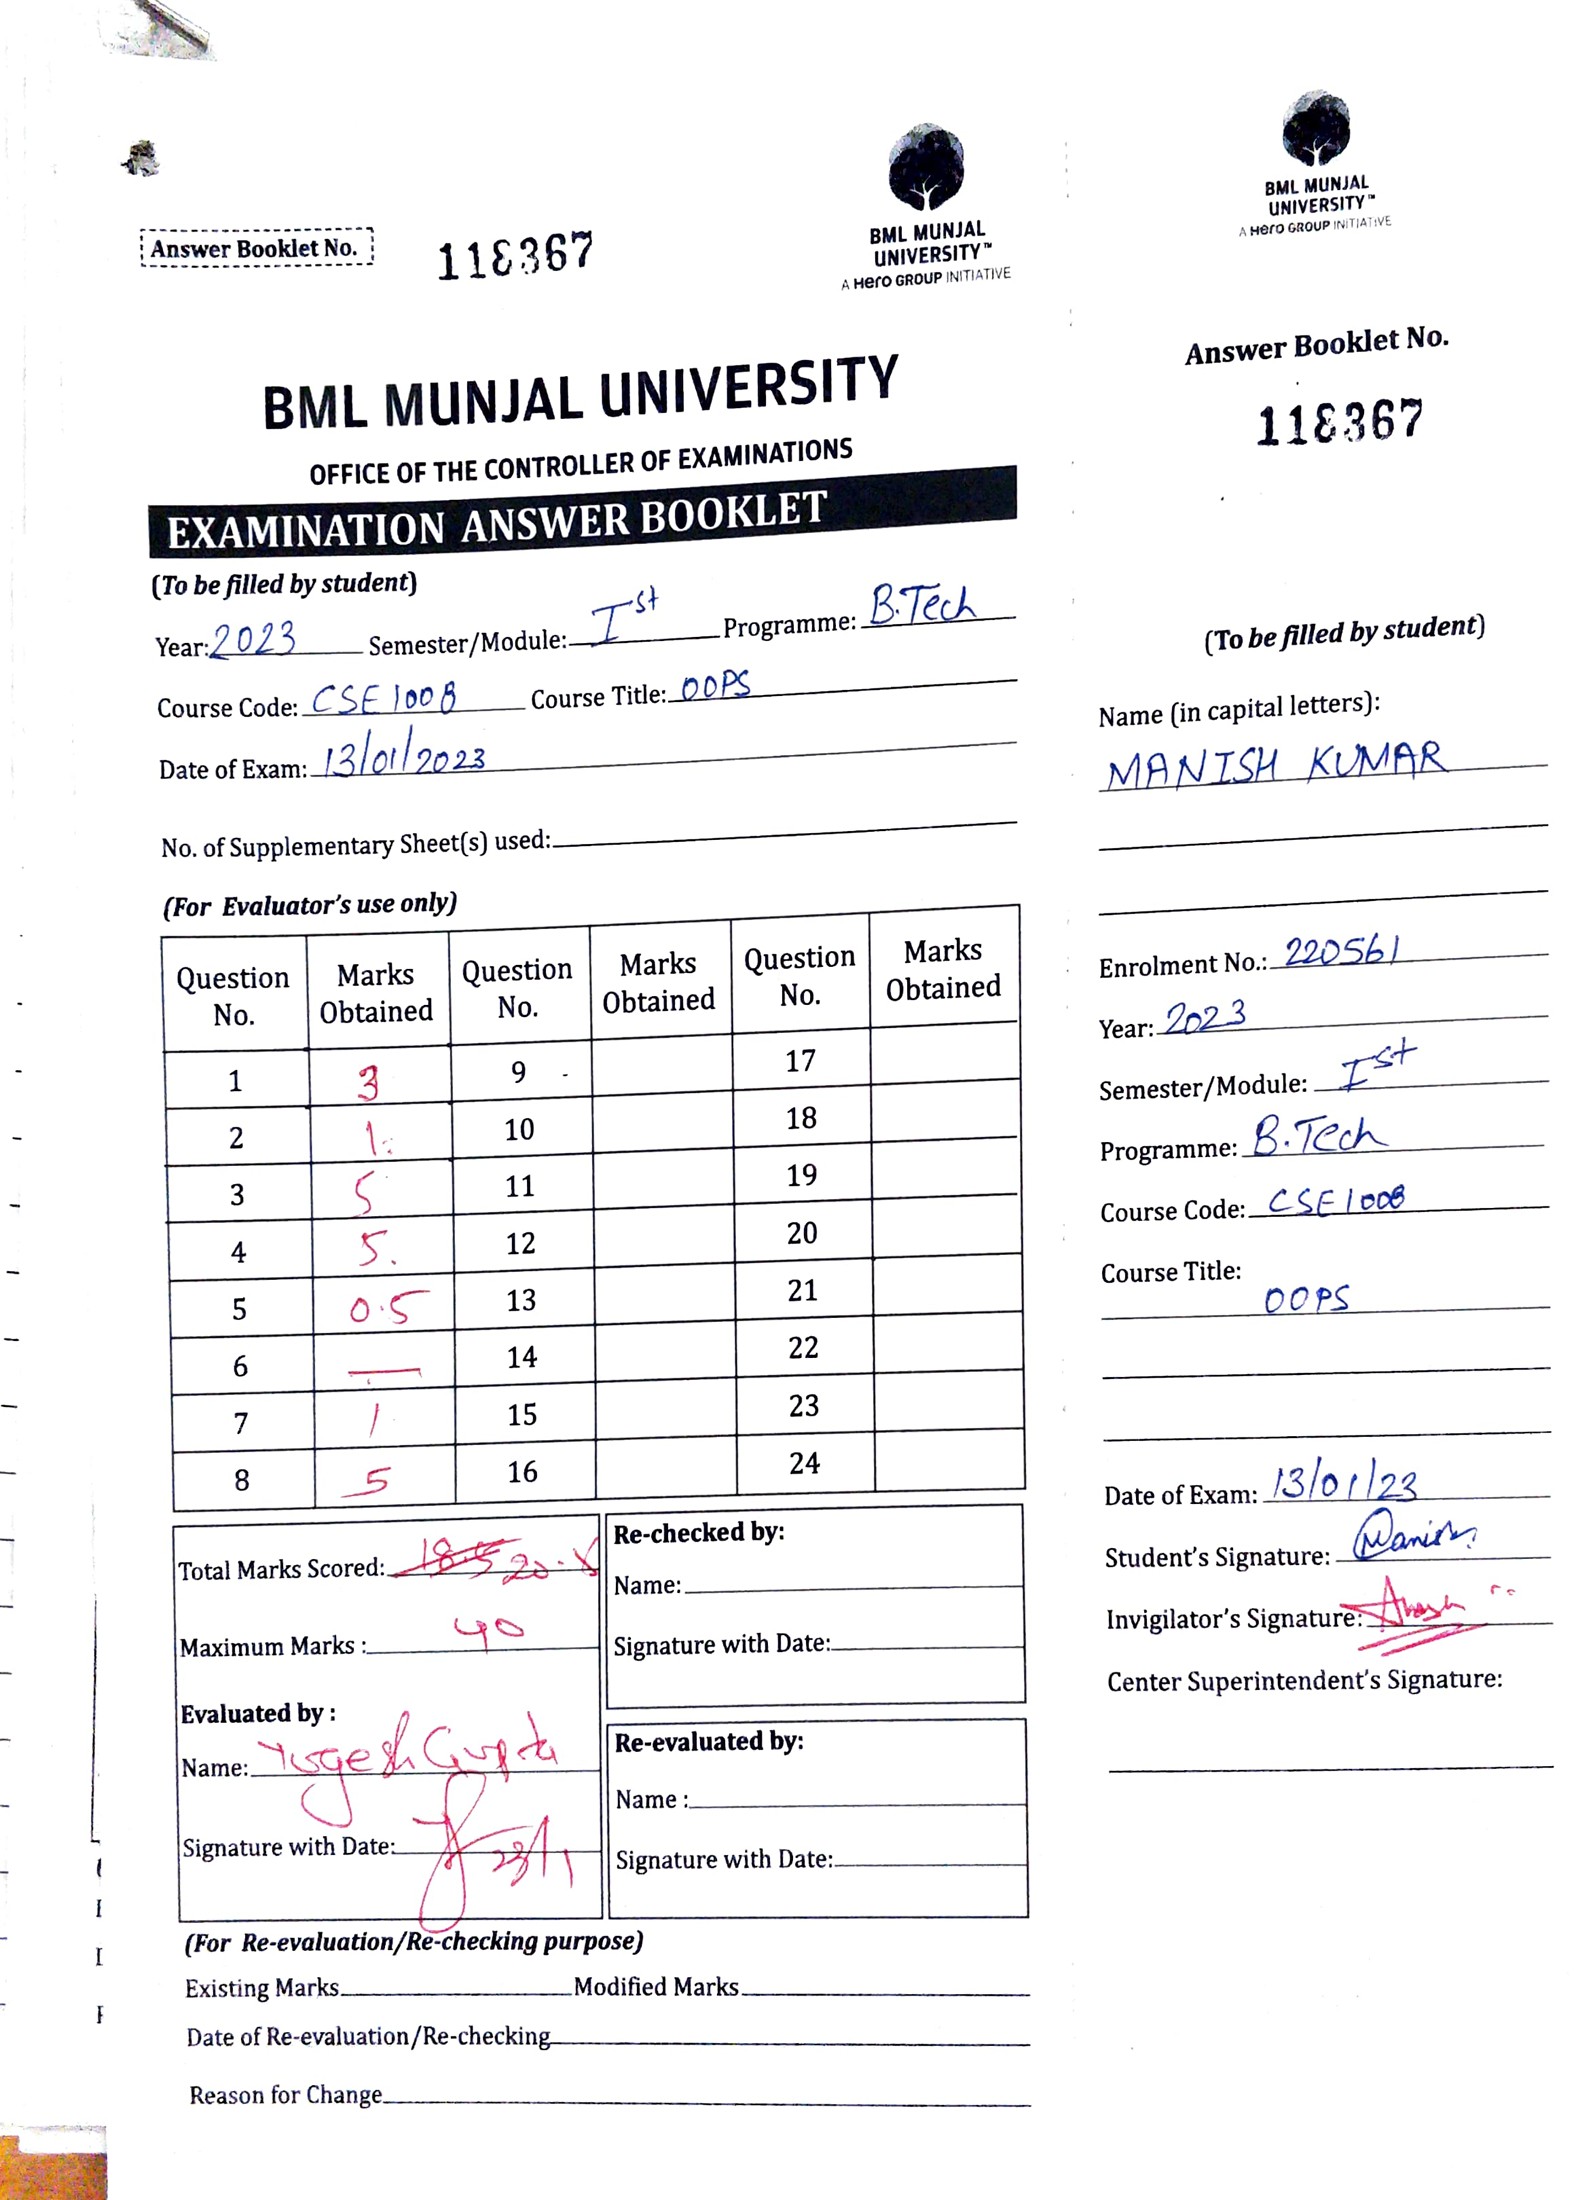 BML MUNJAL
UNIVERSITY™
A Hero GROUP INITIATIVE
Answer Booklet No. 118367
BML MUNJAL UNIVERSITY
OFFICE OF THE CONTROLLER OF EXAMINATIONS
EXAMINATION ANSWER BOOKLET
(To be filled by student)
Year: 2023 Semester/Module: Ist Programme: B.Tech
Course Code: CSE1008 Course Title: OOPS
Date of Exam: 13/01/2023
No. of Supplementary Sheet(s) used:
(For Evaluator's use only)
Question No. Marks Obtained Question No. Marks Obtained Question No. Marks Obtained
1 3 9 17
2 1 10 18
3 5 11 19
4 5. 12 20
5 0.5 13 21
6 — 14 22
7 1 15 23
8 5 16 24
Total Marks Scored: 18.5
Maximum Marks : 40
Evaluated by :
Name: Yogesh Gupta
Signature with Date: 23/1
Re-checked by:
Name:
Signature with Date:
Re-evaluated by:
Name :
Signature with Date:
(For Re-evaluation/Re-checking purpose)
Existing Marks Modified Marks
Date of Re-evaluation/Re-checking
Reason for Change
BML MUNJAL
UNIVERSITY™
A Hero GROUP INITIATIVE
Answer Booklet No.
118367
(To be filled by student)
Name (in capital letters):
MANISH KUMAR
Enrolment No.: 220561
Year: 2023
Semester/Module: Ist
Programme: B.Tech
Course Code: CSE1008
Course Title:
OOPS
Date of Exam: 13/01/23
Student's Signature: Manish
Invigilator's Signature:
Center Superintendent's Signature: